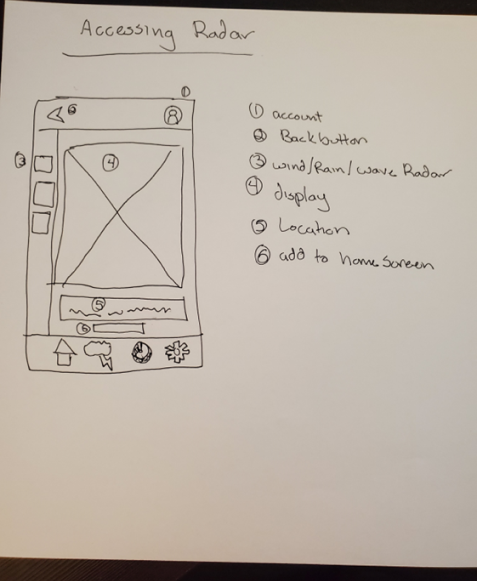 Accessing Radar
①
② 
③
④
⑤
⑥
① account
② Back button
③ wind/Rain/wave Radar
④ display
⑤ Location
⑥ add to home screen